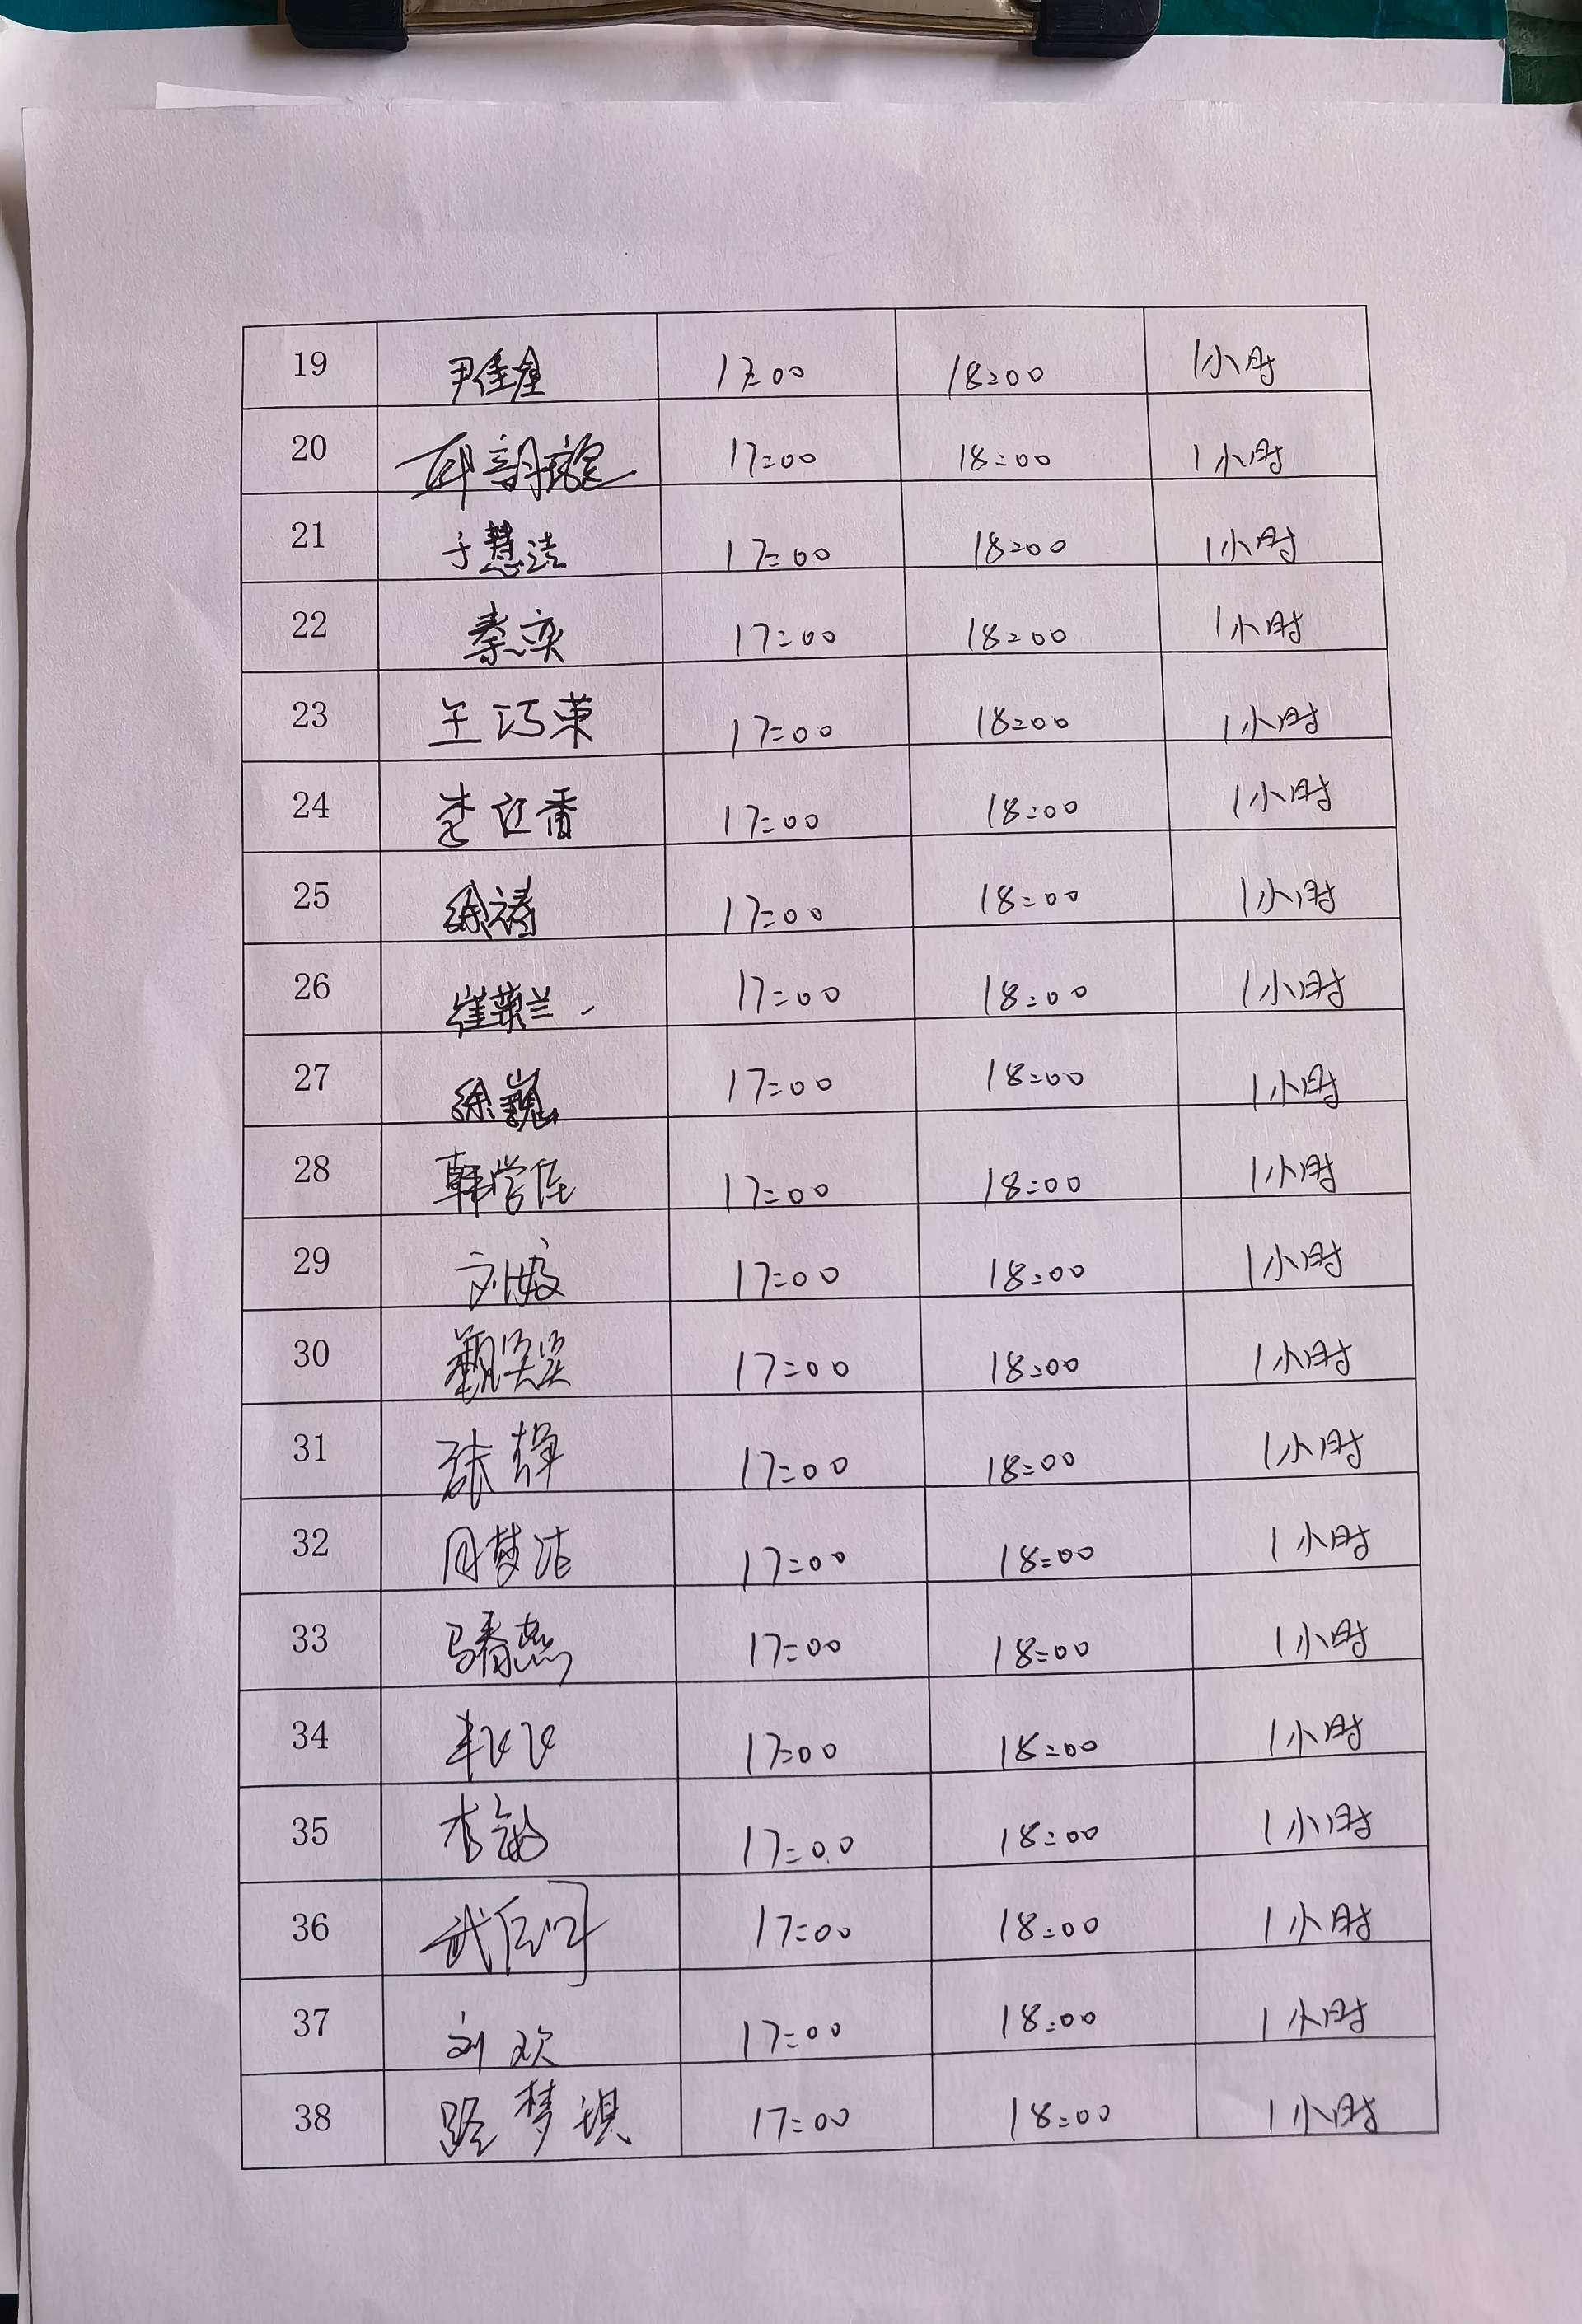 19 尹佳莹 17:00 18:00 1小时
20 17:00 18:00 1小时
21 于慧洁 17:00 18:00 1小时
22 秦奕 17:00 18:00 1小时
23 王巧荣 17:00 18:00 1小时
24 李红香 17:00 18:00 1小时
25 徐涛 17:00 18:00 1小时
26 崔兰 17:00 18:00 1小时
27 徐巍 17:00 18:00 1小时
28 韩学 17:00 18:00 1小时
29 刘 17:00 18:00 1小时
30 魏笑笑 17:00 18:00 1小时
31 张辉 17:00 18:00 1小时
32 周梦洁 17:00 18:00 1小时
33 马春燕 17:00 18:00 1小时
34 17:00 18:00 1小时
35 李敏 17:00 18:00 1小时
36 武 17:00 18:00 1小时
37 刘欢 17:00 18:00 1小时
38 路梦琪 17:00 18:00 1小时